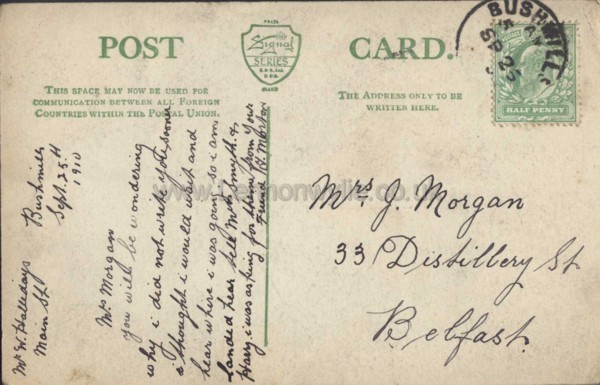 POST
CARD.
TRADE
Signal
SERIES
E. & S. Ltd.
DUB.
MARK
THIS SPACE MAY NOW BE USED FOR
COMMUNICATION BETWEEN ALL FOREIGN
COUNTRIES WITHIN THE POSTAL UNION.
THE ADDRESS ONLY TO BE
WRITTEN HERE.
BUSHMILLS
SP 25
HALF PENNY
Mr W. Hallidays
Main St
Bushmills
Sept. 25th
1910
Mrs Morgan
you will be wondering
why i did not write you sooner
i thought i would wait and
hear where i was going so i am
landed hear tell Mrs Smyth &
Harry i was asking for them from your
Friend
Mrs J. Morgan
33 Distillery St
Belfast.